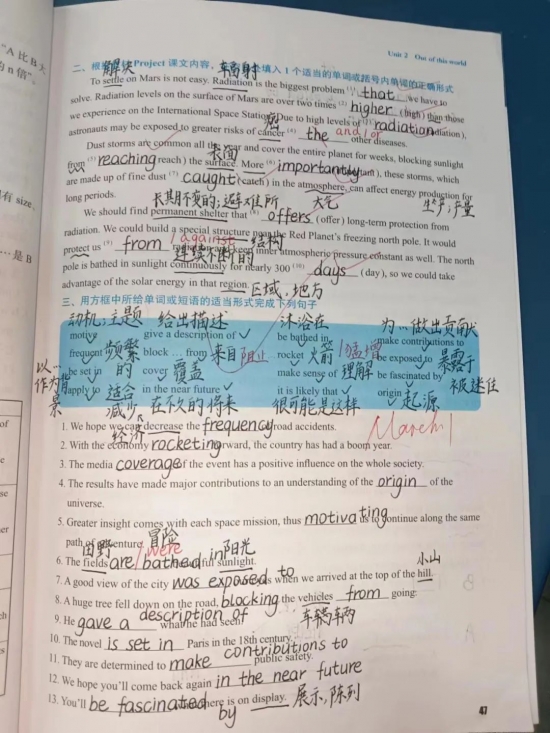 "A 比 B 大
的 n 倍".
Unit 2 Out of this world
解决 车富射
二、根 Project 课文内容, 填入 1 个适当的单词或括号内单词的正确形式
To settle on Mars is not easy. Radiation is the biggest problem (1) that we have to
solve. Radiation levels on the surface of Mars are over two times (2) higher (high) than those
we experience on the International Space Station. Due to high levels of (3) radiation
癌 and/or
astronauts may be exposed to greater risks of cancer (4) the other diseases.
Dust storms are common all the year and cover the entire planet for weeks, blocking sunlight
表面
from (5) reaching (reach) the surface. More (6) importantly, these storms, which
are made up of fine dust (7) caught (catch) in the atmosphere, can affect energy production for
long periods. 长期不变的;避难所 大气 生产,产量
We should find permanent shelter that (8) offers (offer) long-term protection from
radiation. We could build a special structure near the Red Planet's freezing north pole. It would
protect us (9) from /against 结构 radiation and keep inner atmospheric pressure constant as well. The north
连续不断的
pole is bathed in sunlight continuously for nearly 300 (10) days (day), so we could take
advantage of the solar energy in that region. 区域,地方
三、用方框中所给单词或短语的适当形式完成下列句子
动机;主题 给出描述 沐浴在 为…做出贡献
motive give a description of be bathed in make contributions to
以…作为背景
frequent 频繁的 block … from 来自 阻止 rocket 火箭 猛增 be exposed to 暴露于
be set in cover 覆盖 make sense of 理解 be fascinated by 被迷住
apply to 适合 in the near future it is likely that origin 起源
减少 在不久的将来 很可能是这样
March 1
1. We hope we can decrease the frequency road accidents.
经济
2. With the economy rocketing forward, the country has had a boom year.
3. The media coverage of the event has a positive influence on the whole society.
4. The results have made major contributions to an understanding of the origin of the
universe.
5. Greater insight comes with each space mission, thus motivating us to continue along the same
path of adventure. 冒险
田野 /were 阳光
6. The fields are bathed in sunlight.
小山
7. A good view of the city was exposed to us when we arrived at the top of the hill.
8. A huge tree fell down on the road, blocking the vehicles from going.
车辆
9. He gave a description of what he had seen.
10. The novel is set in Paris in the 18th century.
11. They are determined to make contributions to public safety.
12. We hope you'll come back again in the near future
13. You'll be fascinated by there is on display. 展示,陈列
47